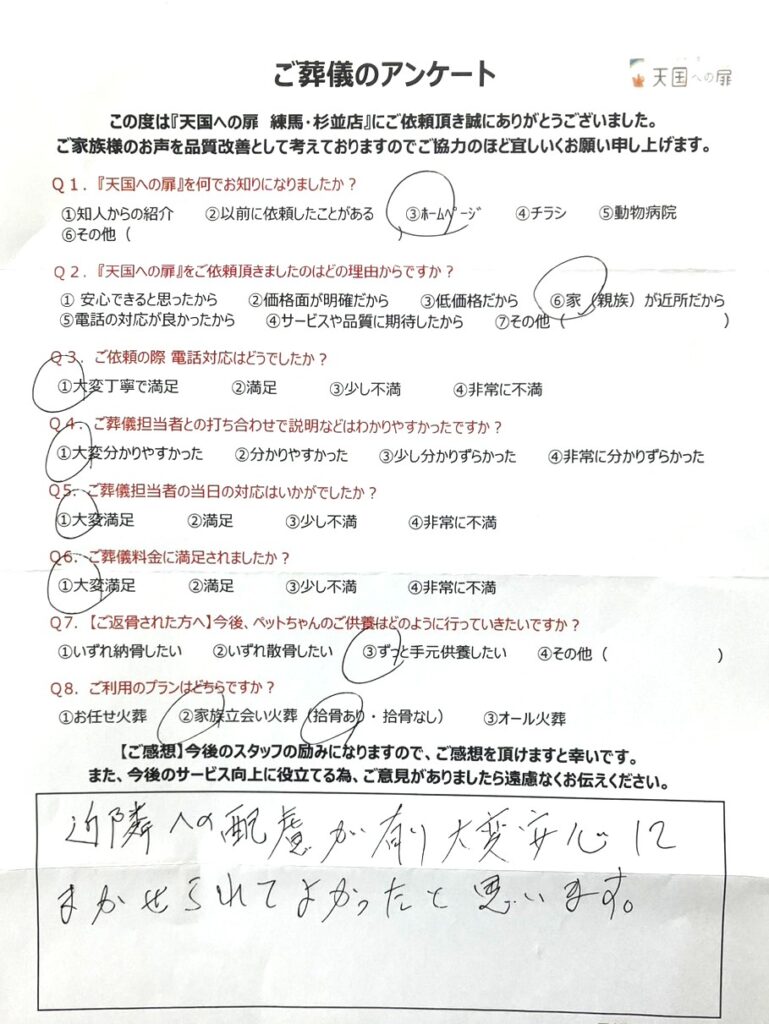 ご葬儀のアンケート
天国への扉
この度は『天国への扉 練馬・杉並店』にご依頼頂き誠にありがとうございました。
ご家族様のお声を品質改善として考えておりますのでご協力のほど宜しいくお願い申し上げます。
Q1.『天国への扉』を何でお知りになりましたか？
①知人からの紹介 ②以前に依頼したことがある ③ﾎｰﾑﾍﾟｰｼﾞ ④チラシ ⑤動物病院
⑥その他（ ）
Q2.『天国への扉』をご依頼頂きましたのはどの理由からですか？
① 安心できると思ったから ②価格面が明確だから ③低価格だから ⑥家（親族）が近所だから
⑤電話の対応が良かったから ④サービスや品質に期待したから ⑦その他（ ）
Q3．ご依頼の際 電話対応はどうでしたか？
①大変丁寧で満足 ②満足 ③少し不満 ④非常に不満
Q4．ご葬儀担当者との打ち合わせで説明などはわかりやすかったですか？
①大変分かりやすかった ②分かりやすかった ③少し分かりずらかった ④非常に分かりずらかった
Q5．ご葬儀担当者の当日の対応はいかがでしたか？
①大変満足 ②満足 ③少し不満 ④非常に不満
Q6．ご葬儀料金に満足されましたか？
①大変満足 ②満足 ③少し不満 ④非常に不満
Q7．【ご返骨された方へ】今後、ペットちゃんのご供養はどのように行っていきたいですか？
①いずれ納骨したい ②いずれ散骨したい ③ずっと手元供養したい ④その他（ ）
Q8．ご利用のプランはどちらですか？
①お任せ火葬 ②家族立会い火葬（拾骨あり・拾骨なし） ③オール火葬
【ご感想】今後のスタッフの励みになりますので、ご感想を頂けますと幸いです。
また、今後のサービス向上に役立てる為、ご意見がありましたら遠慮なくお伝えください。
近隣への配慮が有り大変安心に
まかせられてよかったと思います。